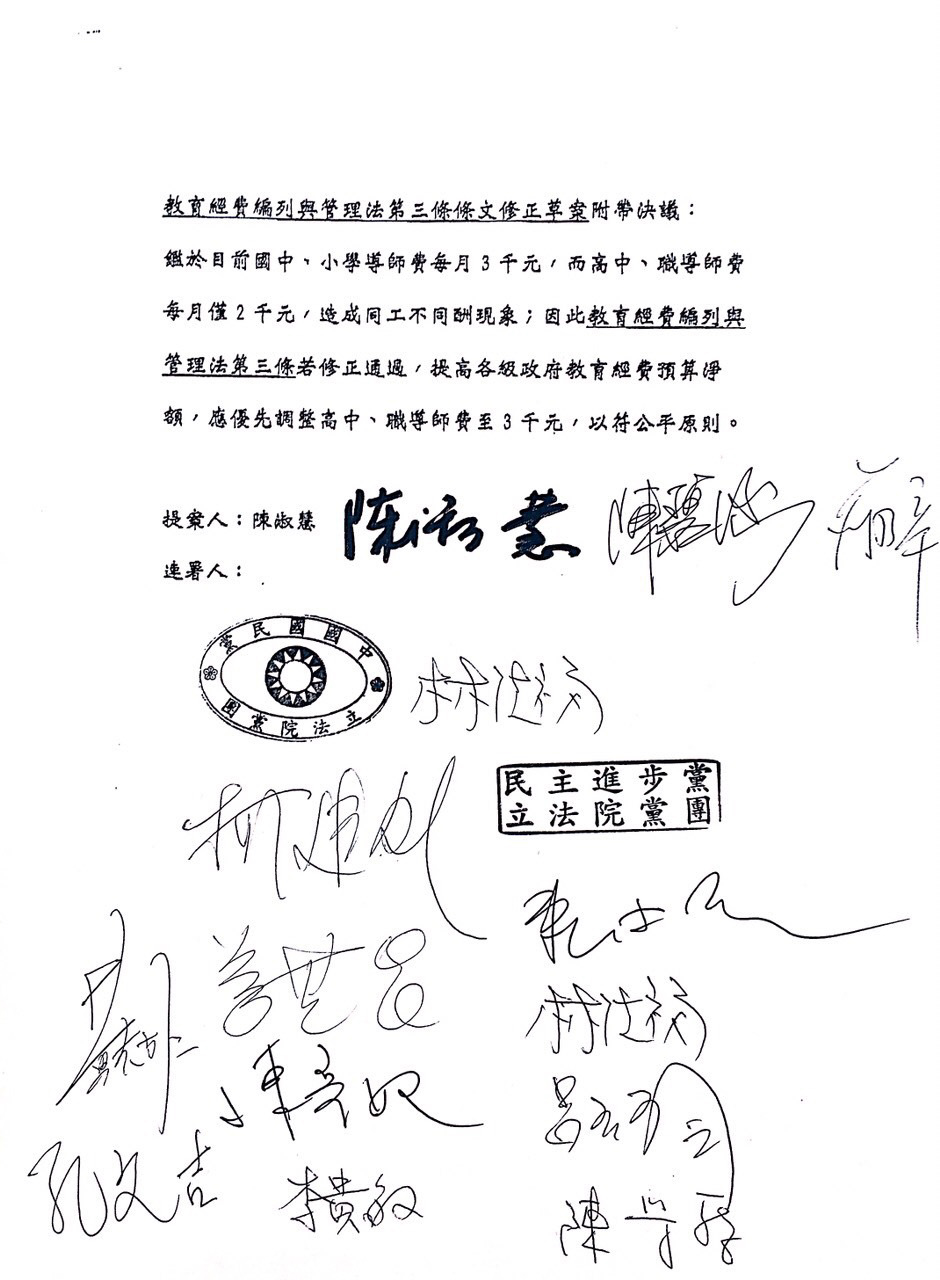 教育經費編列與管理法第三條條文修正草案附帶決議：
鑑於目前國中、小學導師費每月3千元，而高中、職導師費
每月僅2千元，造成同工不同酬現象；因此教育經費編列與
管理法第三條若修正通過，提高各級政府教育經費預算淨
額，應優先調整高中、職導師費至3千元，以符公平原則。
提案人：陳淑慧 陳淑慧
連署人：
中國國民黨
立法院黨團
林德福
民主進步黨
立法院黨團
柯建銘
林德福
孔文吉
李貴敏
陳學聖